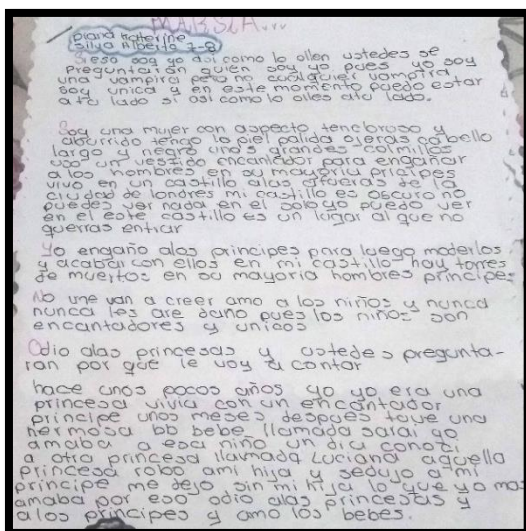 MARSIA...
Diana Katerine
Silva Alberto 7-8
Si eso soy yo asi como lo ollen ustedes se
preguntaran quien soy yo pues yo soy
una vampira pero no cualquier vampira
soy unica y en este momento puedo estar
a tu lado si asi como lo olles atu lado.
Soy una mujer con aspecto tenebroso y
aburrido tengo la piel palida ojeras cabello
largo y negro unos grandes colmillos
uso un vestido encantador para engañar
a los hombres en su mayoria pricipes
vivo en un castillo alas afueras de la
ciudad de londres mi castillo es oscuro no
puedes ver nada en el solo yo puedo ver
en el este castillo es un lugar al que no
querras entrar
Yo engaño alos principes para luego moderlos
y acabar con ellos en mi castillo hay torres
de muertos en su mayoria hombres principes
No me van a creer amo a los niños y nunca
nunca les are daño pues los niños son
encantadores y unicos
Odio alas princesas y ustedes pregunta-
ran por que le voy a contar
hace unos pocos años yo yo era una
princesa vivia con un encantador
principe unos meses despues tuve una
hermosa bb bebe llamada sarai yo
amaba a esa niño un dia conoci
a otra princesa llamada Luciana aquella
princesa robo ami hija y sedujo a mi
principe me dejo sin mi hija lo que yo mas
amaba por eso odio alas princesas y
alos principes y amo los bebes.